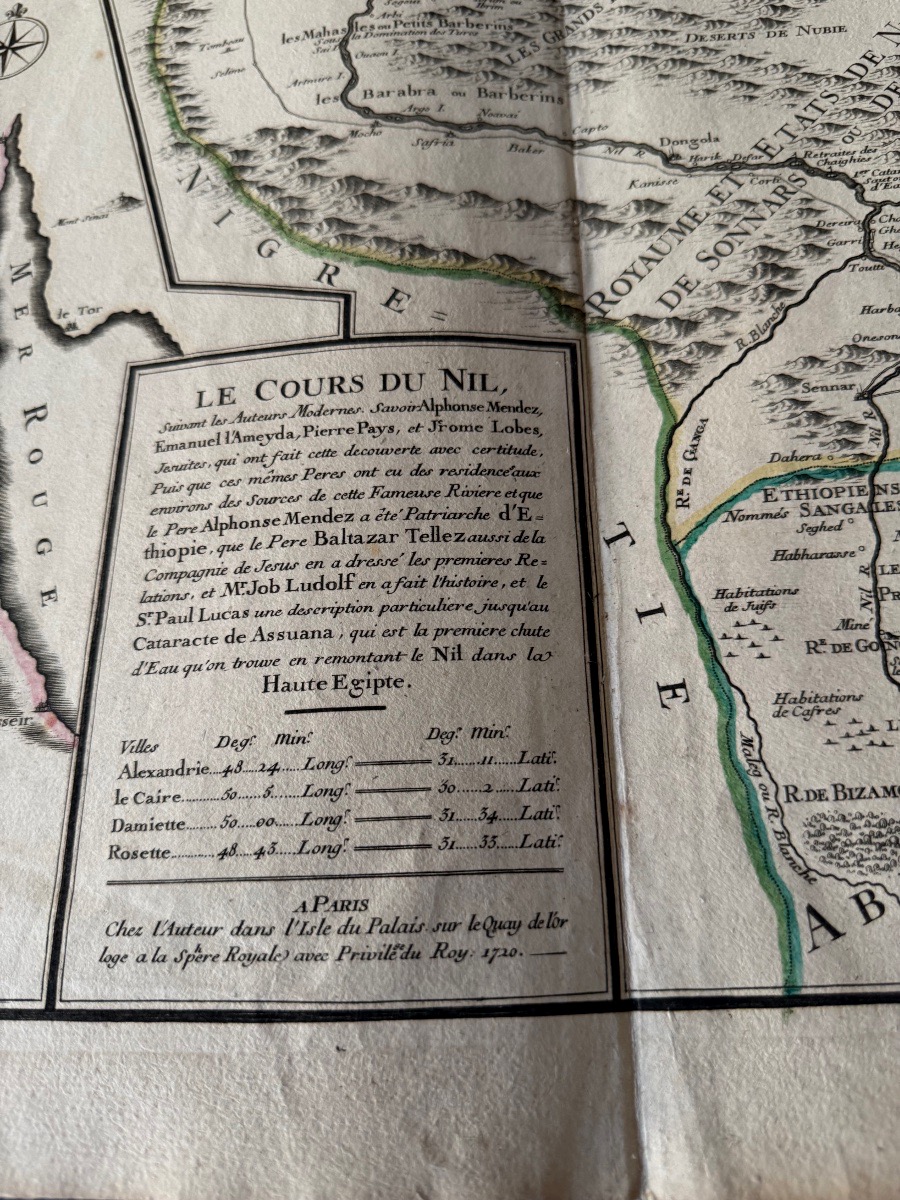 Sogout
Arbi
Ibrim
les Mahas
les ou Petits Barberins
Sous la Domination des Turcs
Sai I.
Tombeau
Selime
Artmure I.
les Barabra ou Barberins
Argo I.
Noavai
Mocho
Safria
Baker
Capto
Nil R.
Dongola
Harik
Defar
Korti
Kanisse
LES GRANDS
DESERTS DE NUBIE
Retraites des
Chaighies
ROYAUME ET ETATS DE
OU DE
DE SONNARS
Dereira
Garri
Toutti
Harba
R. Blanche
Sennar
Dahera
Re. DE GANGA
ETHIOPIENS
Nommés SANGALES
Seghed
Habharasse
Habitations
de Juifs
Nil R.
Miné
Habitations
de Cafres
Maleg ou R. Blanche
R. DE BIZAMO
AB
NIGRE=
TIE
Mont Sinai
le Tor
MER ROUGE
LE COURS DU NIL,
Suivant les Auteurs Modernes. Savoir Alphonse Mendez,
Emanuel d'Ameyda, Pierre Pays, et Jrome Lobes,
Jesuites, qui ont fait cette decouverte avec certitude,
Puis que ces mêmes Peres ont eu des residences aux
environs des Sources de cette Fameuse Riviere et que
le Pere Alphonse Mendez a été Patriarche d'E=
thiopie, que le Pere Baltazar Tellez aussi de la
Compagnie de Jesus en a dressé les premieres Re=
lations, et Mr. Job Ludolf en a fait l'histoire, et le
Sr. Paul Lucas une description particuliere, jusqu'au
Cataracte de Assuana, qui est la premiere chute
d'Eau qu'on trouve en remontant le Nil dans la
Haute Egipte.
Villes Deg.s Min.s Deg.s Min.s
Alexandrie....48...24.....Long.e 31......11......Lati.e
le Caire........50.....5.....Long.e 30......2......Lati.e
Damiette.......50....00.....Long.e 31......34.....Lati.e
Rosette..........48....43.....Long.e 31......33.....Lati.e
A PARIS
Chez l'Auteur dans l'Isle du Palais sur le Quay de l'or
loge a la Sphere Royale, avec Privilége du Roy: 1720.